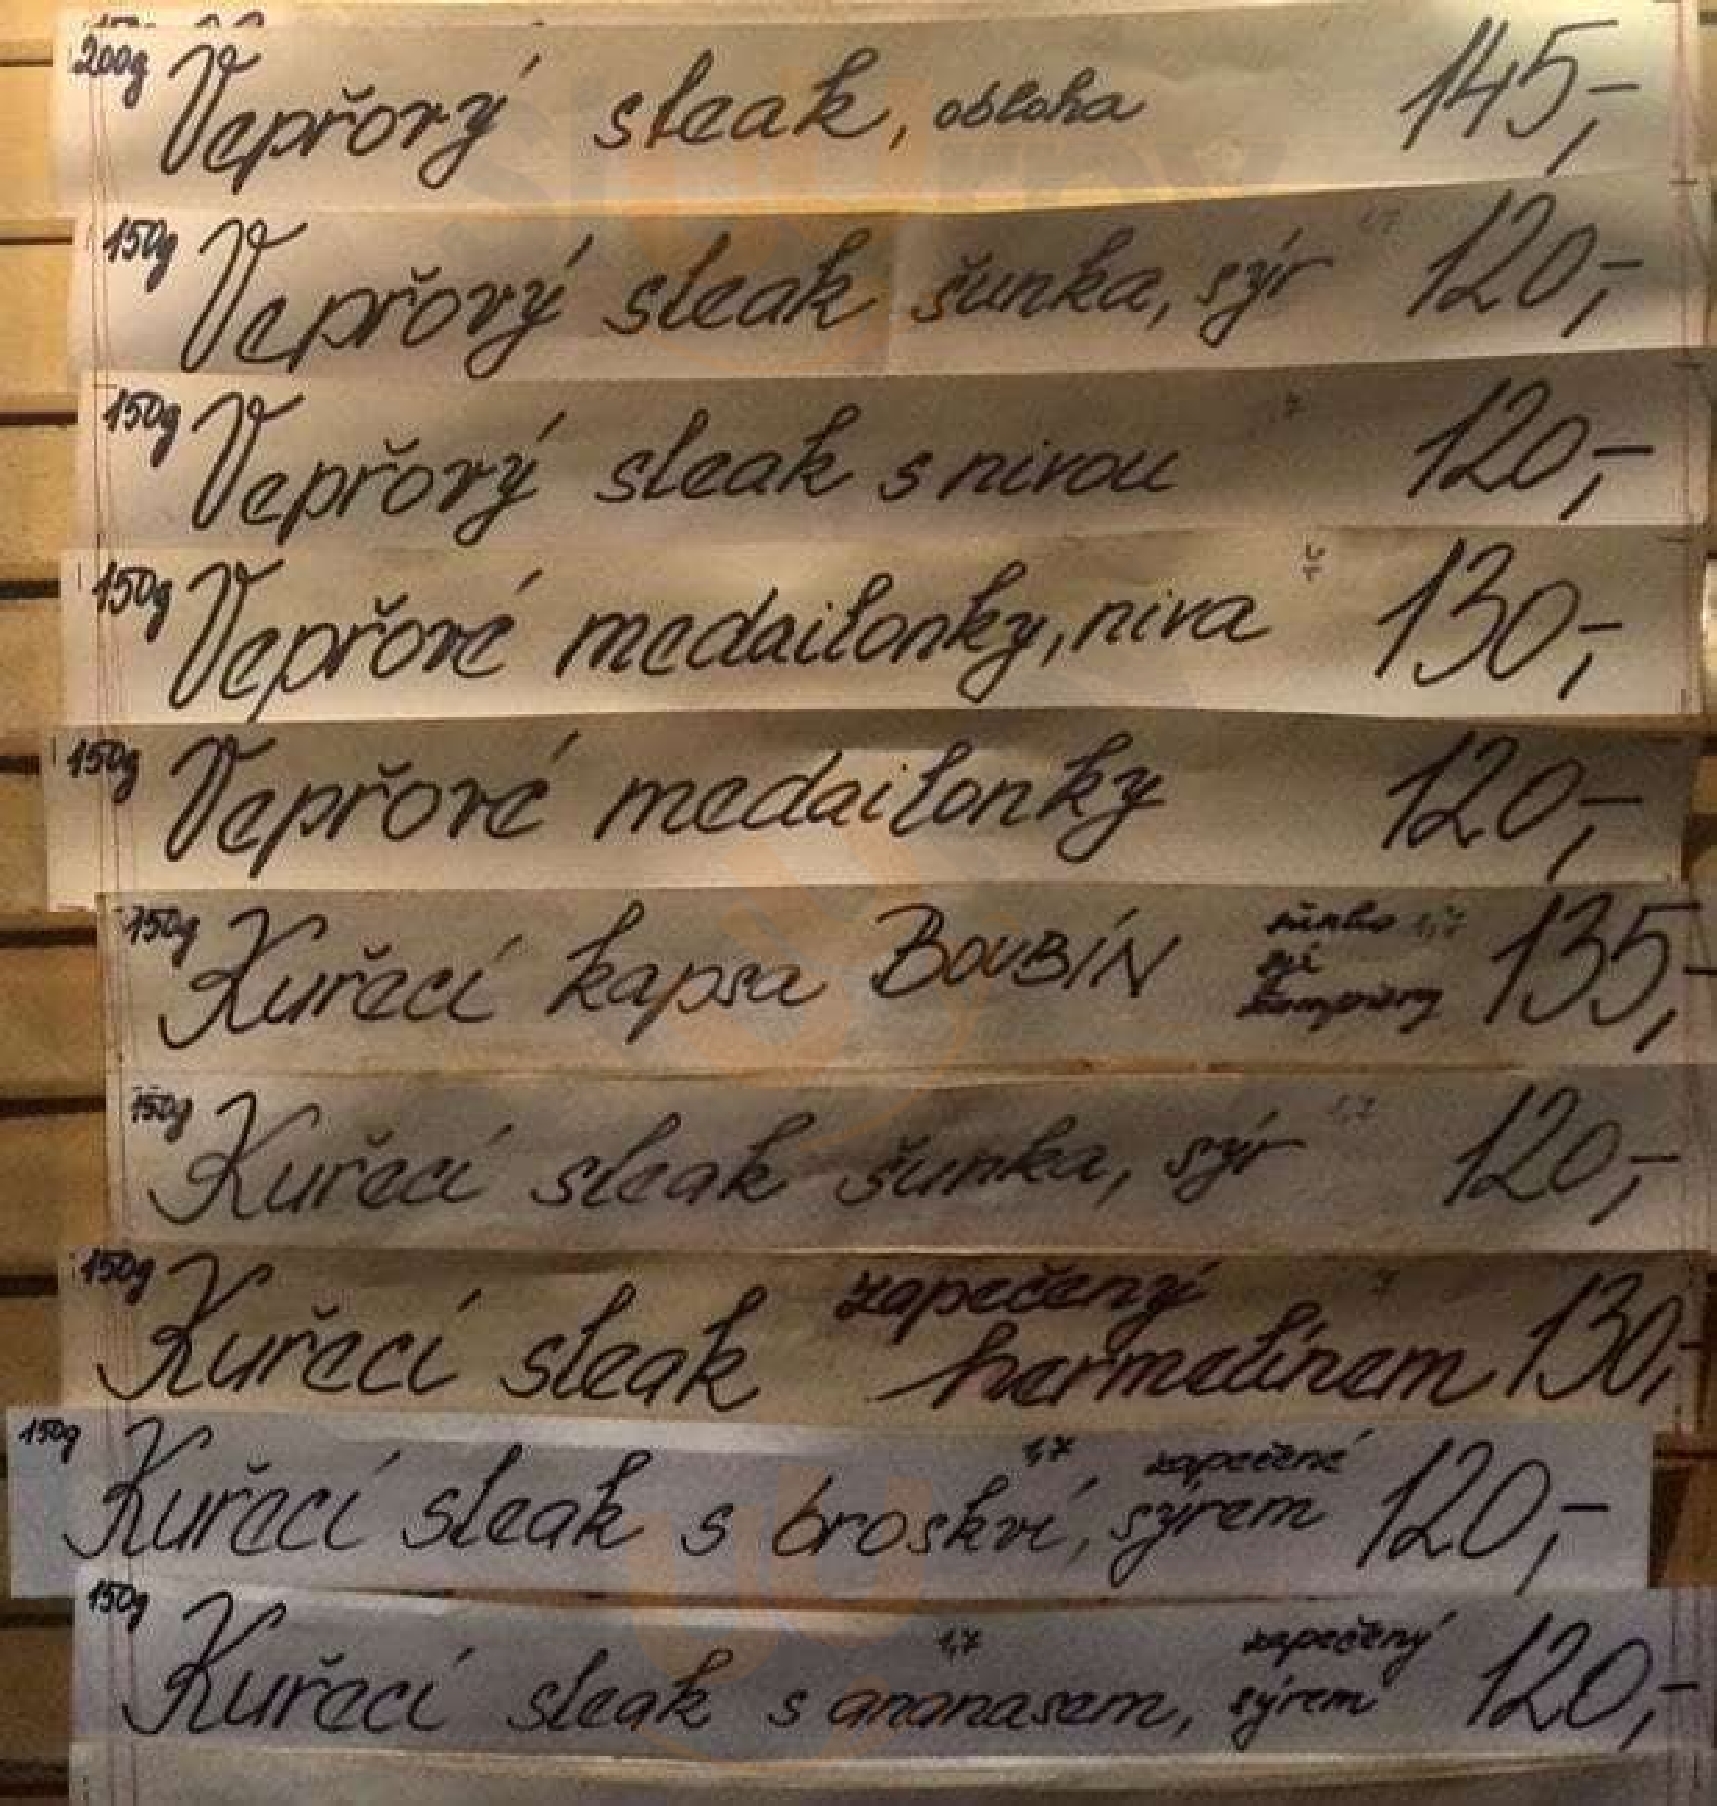 200g Vepřový steak, obloha 145,-
150g Vepřový steak šunka, sýr 1,7 120,-
150g Vepřový steak s nivou 7 120,-
150g Vepřové medailonky, niva 130,-
150g Vepřové medailonky 120,-
150g Kuřecí kapsa BOUBÍN šunka 1,7 sýr žampiony 135,-
150g Kuřecí steak šunka, sýr 1,7 120,-
150g Kuřecí steak zapečený hermelínem 7 130,-
150g Kuřecí steak s broskví, 1,7 zapečené sýrem 120,-
150g Kuřecí steak s ananasem, 1,7 zapečený sýrem 120,-